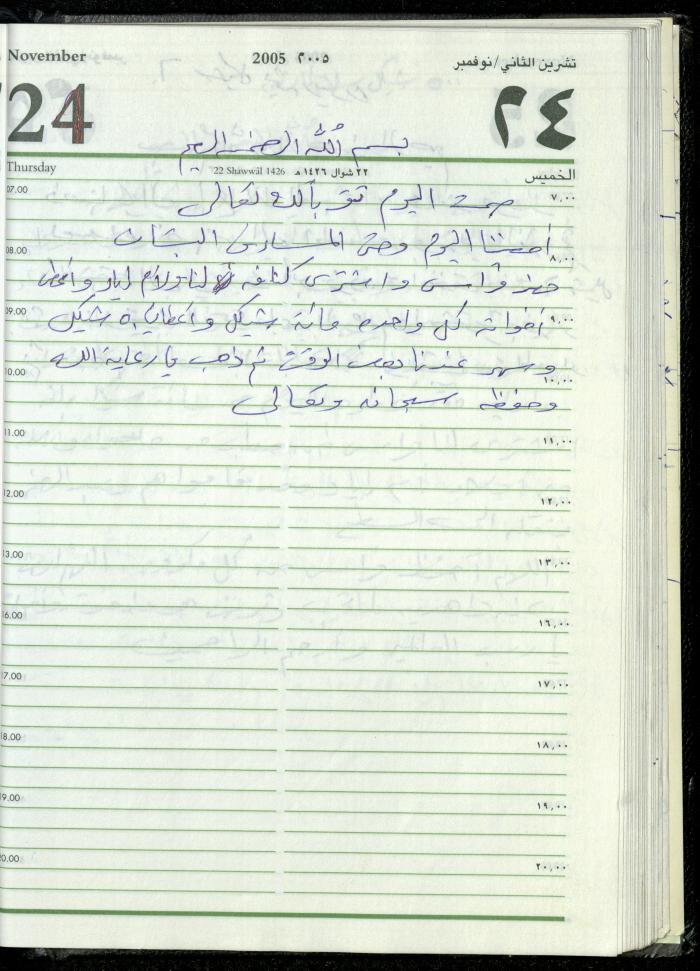 November 2005 ٢٠٠٥ تشرين الثاني/نوفمبر
24 ٢٤
بسم الله الرحمن الرحيم
Thursday 22 Shawwāl 1426 ٢٢ شوال ١٤٢٦ هـ الخميس
07.00 ٧,٠٠
صمت اليوم تقربا لله تعالى
اليوم وحتى البنات
08.00 ٨,٠٠
واشترى لنا ولأم اياد واعطى
09.00 ٩,٠٠
أخواته كل واحده مائة شيكل وأعطاني ٥٠ شيكل
وسهر عندنا بعض الوقت ثم ذهب يا رعاية الله
10.00 ١٠,٠٠
وحفظه سبحانه وتعالى
11.00 ١١,٠٠
12.00 ١٢,٠٠
13.00 ١٣,٠٠
16.00 ١٦,٠٠
17.00 ١٧,٠٠
18.00 ١٨,٠٠
19.00 ١٩,٠٠
20.00 ٢٠,٠٠